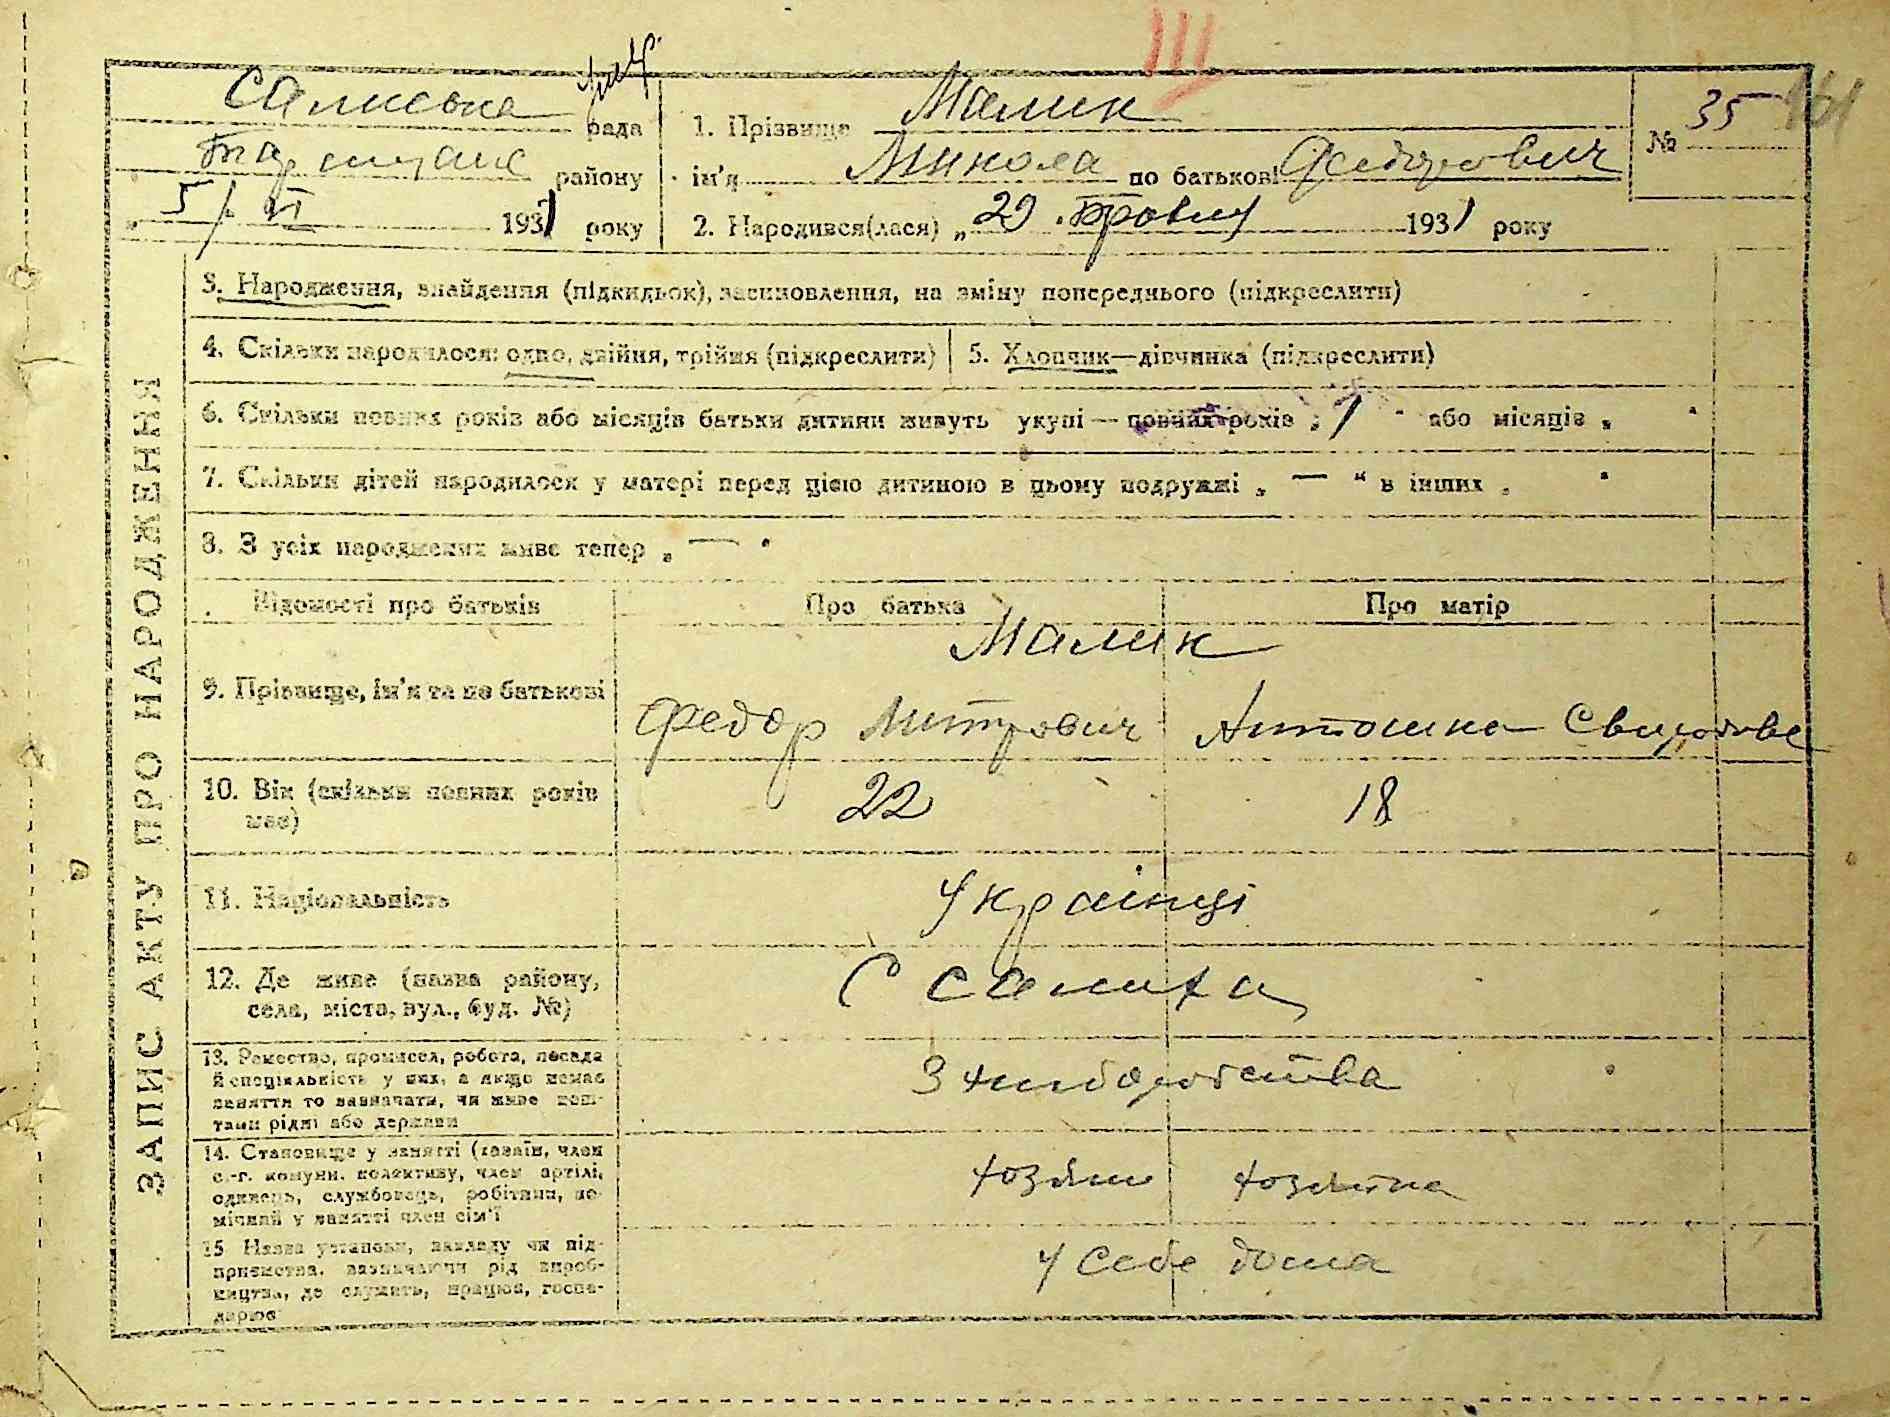 III
Салиська рада
района
5/VI 1931 року
1. Прізвище Малик
ім'я Микола по батькові Федорович
2. Народився(лася) „29 травня 1931 року
№ 35 161
ЗАПИС АКТУ ПРО НАРОДЖЕННЯ
3. Народження, знайдення (підкидьок), засиновлення, на зміну попереднього (підкреслити)
4. Скільки народилося: одно, двійня, трійня (підкреслити)
5. Хлопчик—дівчинка (підкреслити)
6. Скільки повних років або місяців батьки дитини живуть укупі — повних років „1" або місяців „ "
7. Скільки дітей народилося у матері перед цією дитиною в цьому подружжі „—" в інших „ "
8. З усіх народжених живе тепер „—"
Відомості про батьків Про батька Про матір
Малик
9. Прізвище, ім'я та по батькові Федор Митрович Антонина
10. Вік (скільки повних років 22 18
має)
11. Національність Українці
12. Де живе (назва району, С Салиха
села, міста, вул., буд. №)
13. Ремество, промисел, робота, посада
й спеціяльність у них, а якщо немає З хліборобства
заняття то зазначати, чи живе кош-
тами рідні або держави
14. Становище у занятті (хазяїн, член
с.-г. комуни, колективу, член артілі, хозяін хозяйка
одинець, службовець, робітник, по-
мічний у занятті член сім'ї
15 Назва установи, закладу чи під-
приємства, зазначаючи рід вироб- У себе дома
ництва, де служить, працює, госпо-
дарює